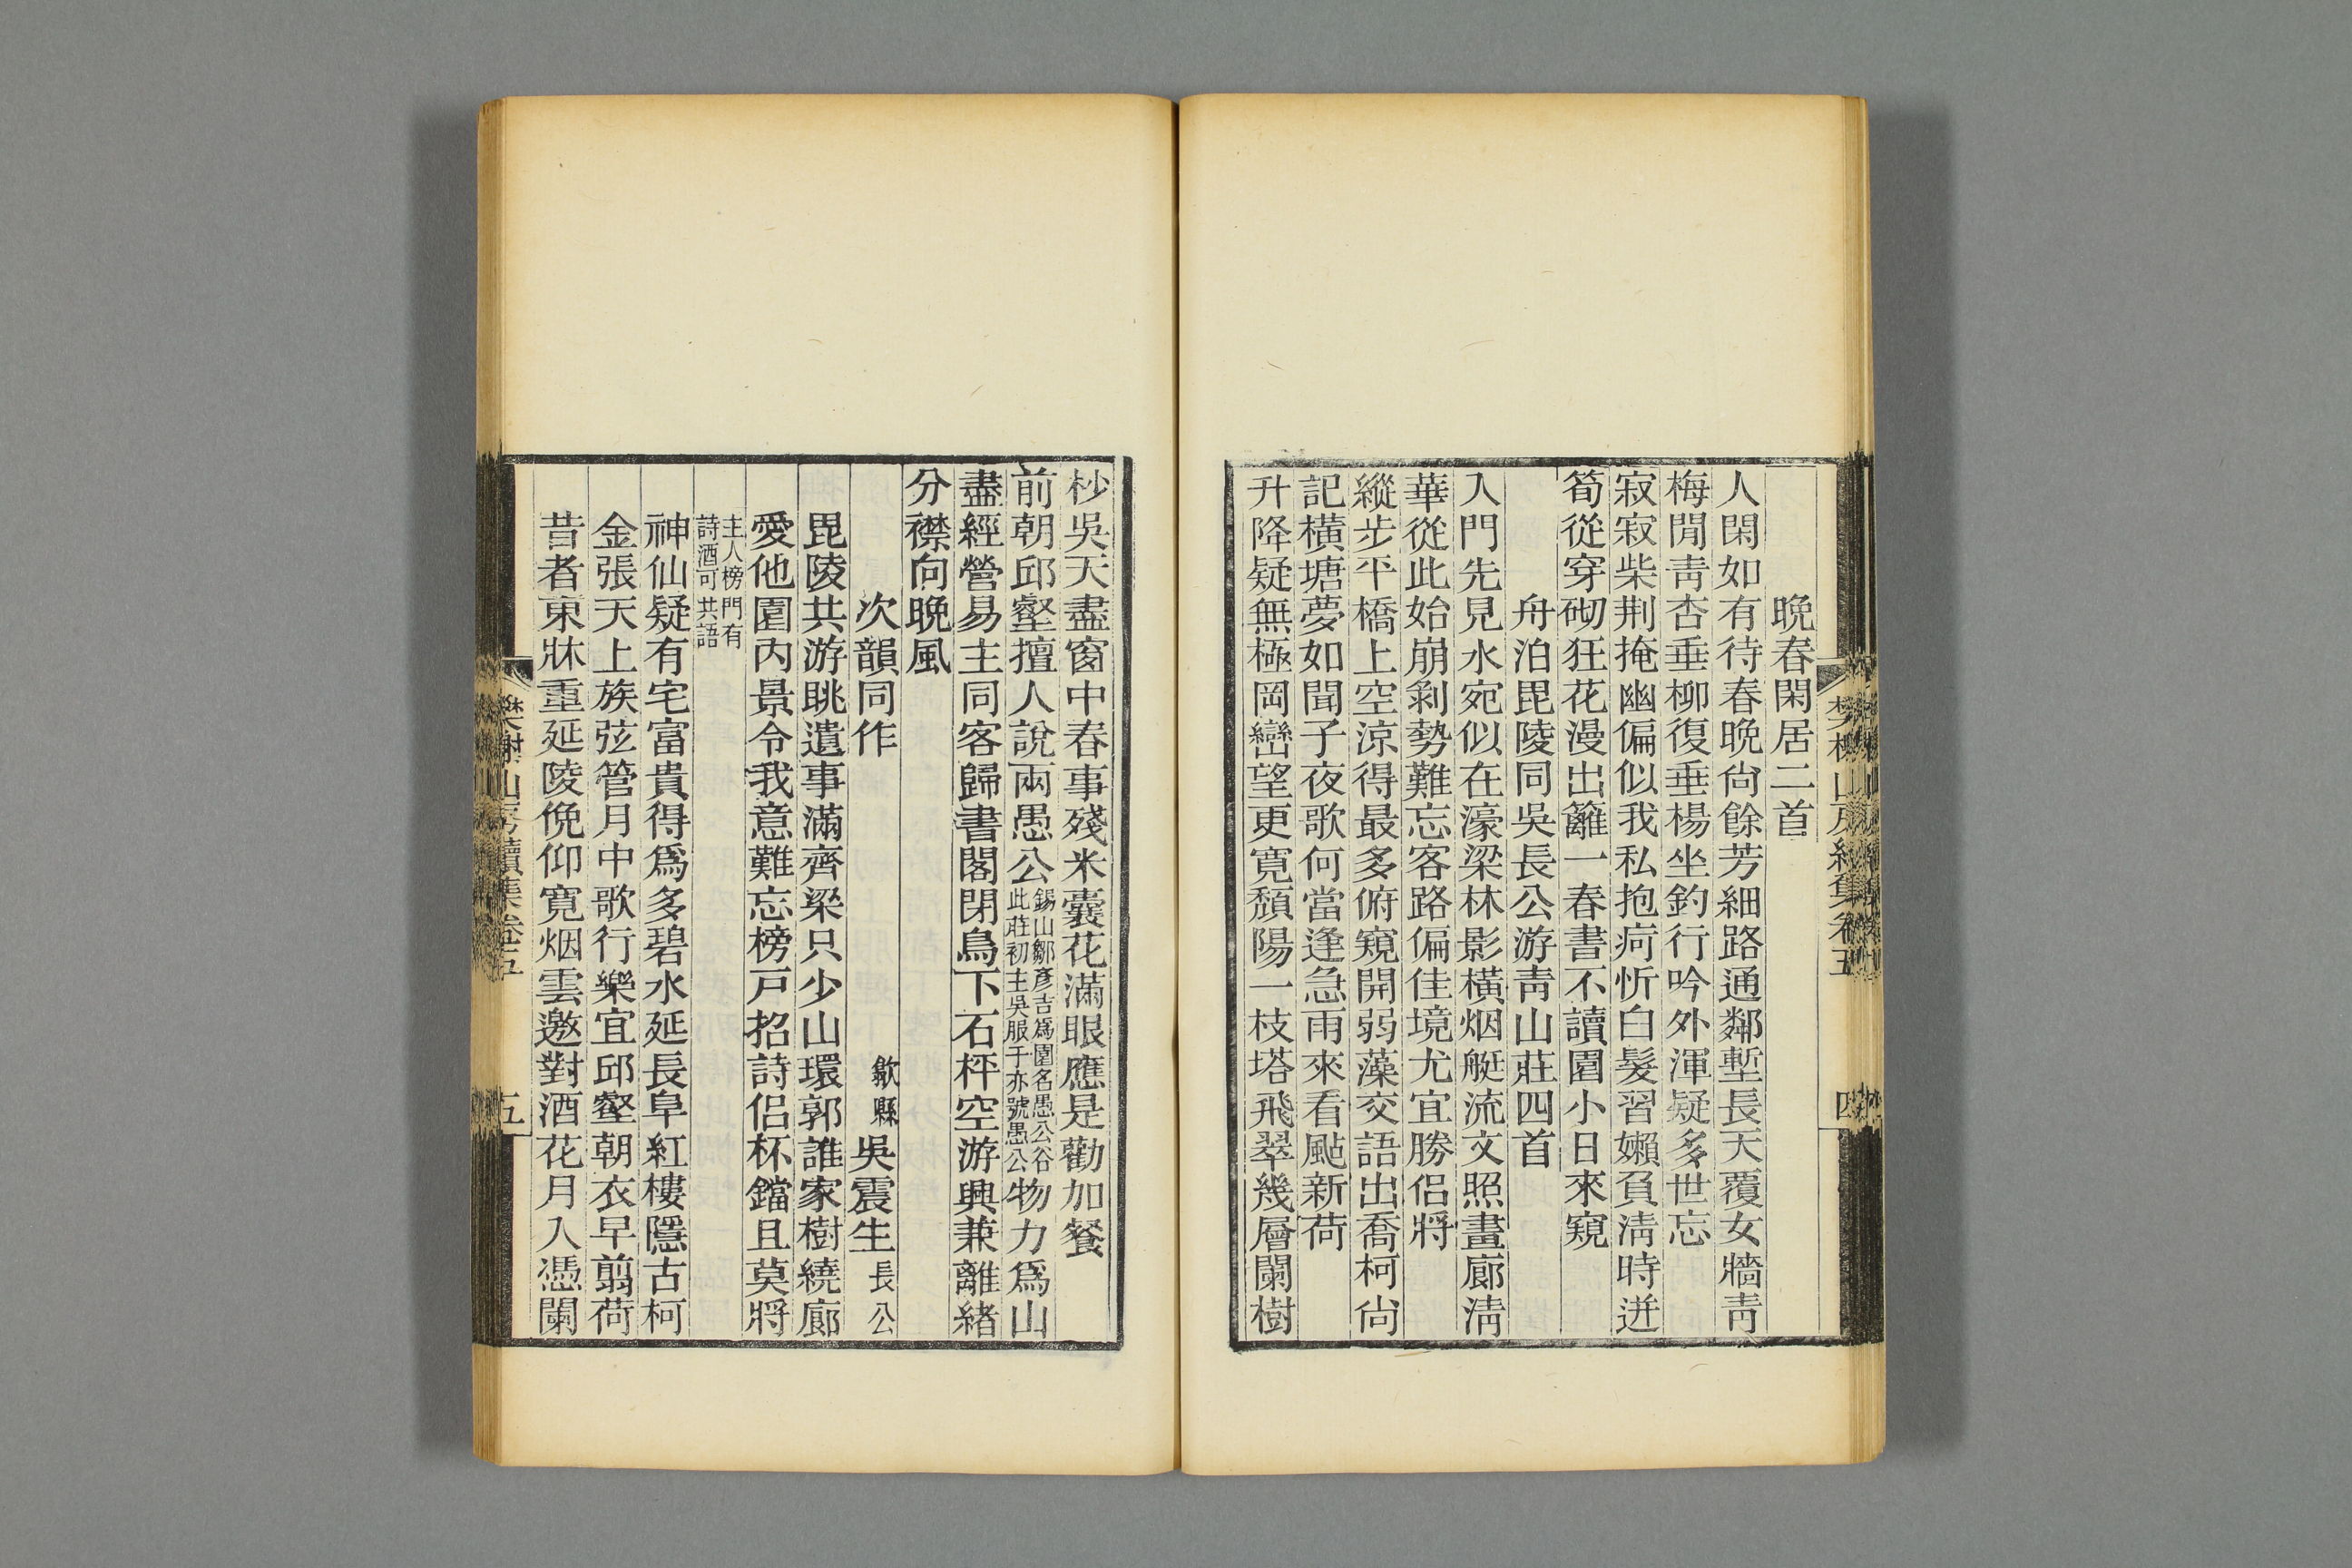 晚春閑居二首
人閑如有待春晚尙餘芳細路通鄰塹長天覆女牆靑
梅閒靑杏垂柳復垂楊坐釣行吟外渾疑多世忘
寂寂柴荆掩幽偏似我私抱疴忻白髮習嬾負淸時迸
筍從穿砌狂花漫出籬一春書不讀園小日來窺
舟泊毘陵同吳長公游靑山莊四首
入門先見水宛似在濠梁林影橫烟艇流文照畫廊淸
華從此始崩剝勢難忘客路偏佳境尤宜勝侶將
縱步平橋上空涼得最多俯窺開弱藻交語出喬柯尙
記橫塘夢如聞子夜歌何當逢急雨來看颭新荷
升降疑無極岡巒望更寬頽陽一枝塔飛翠幾層闌樹
四
杪吳天盡窗中春事殘米囊花滿眼應是勸加餐
前朝邱壑擅人說兩愚公錫山鄒彥吉爲園名愚公谷此莊初主吳服于亦號愚公物力爲山
盡經營易主同客歸書閣閉鳥下石枰空游興兼離緖
分襟向晚風
次韻同作 歙縣吳震生長公
毘陵共游眺遺事滿齊梁只少山環郭誰家樹繞廊
愛他園內景令我意難忘榜戸招詩侶杯鐺且莫將
主人榜門有詩酒可共語
神仙疑有宅富貴得爲多碧水延長阜紅樓隱古柯
金張天上族弦管月中歌行樂宜邱壑朝衣早翦荷
昔者東牀重延陵俛仰寬烟雲邀對酒花月入憑闌
樊榭山房續集卷五
五